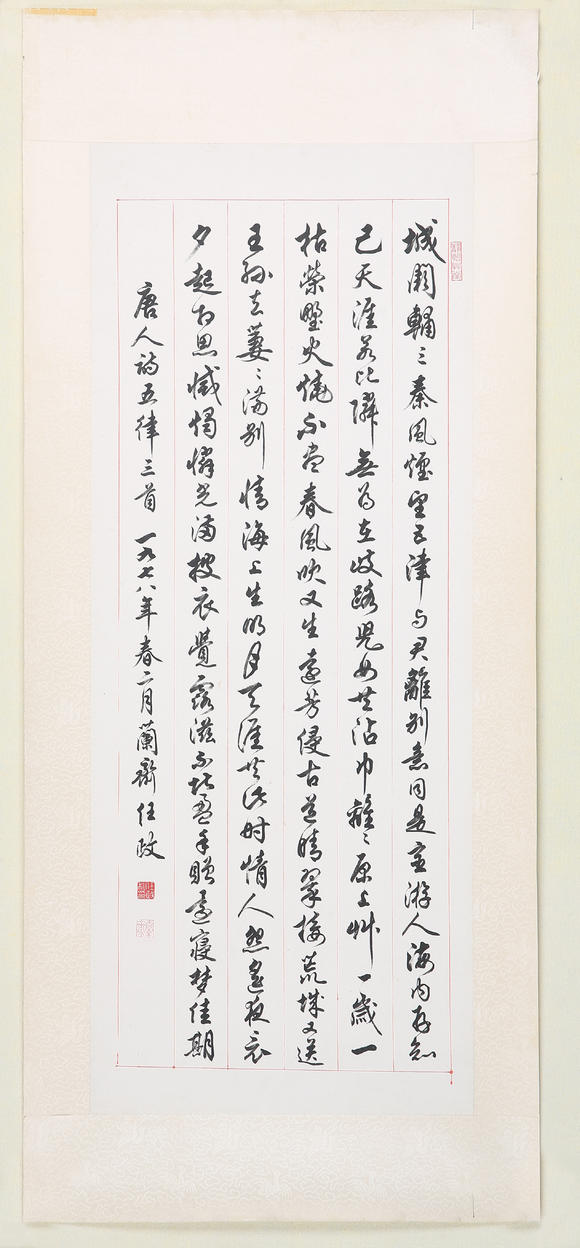 城闕輔三秦風煙望五津与君離別意同是宦游人海内存知
己天涯若比隣無為在歧路兒女共沾巾離〻原上艸一歲一
枯榮野火燒不盡春風吹又生遠芳侵古道晴翠接荒城又送
王孫去萋〻滿別情海上生明月天涯共此时情人怨遙夜竟
夕起相思滅燭憐光滿披衣覺露滋不堪盈手贈還寢夢佳期
唐人詩五律三首 一九七八年春二月蘭齋任政